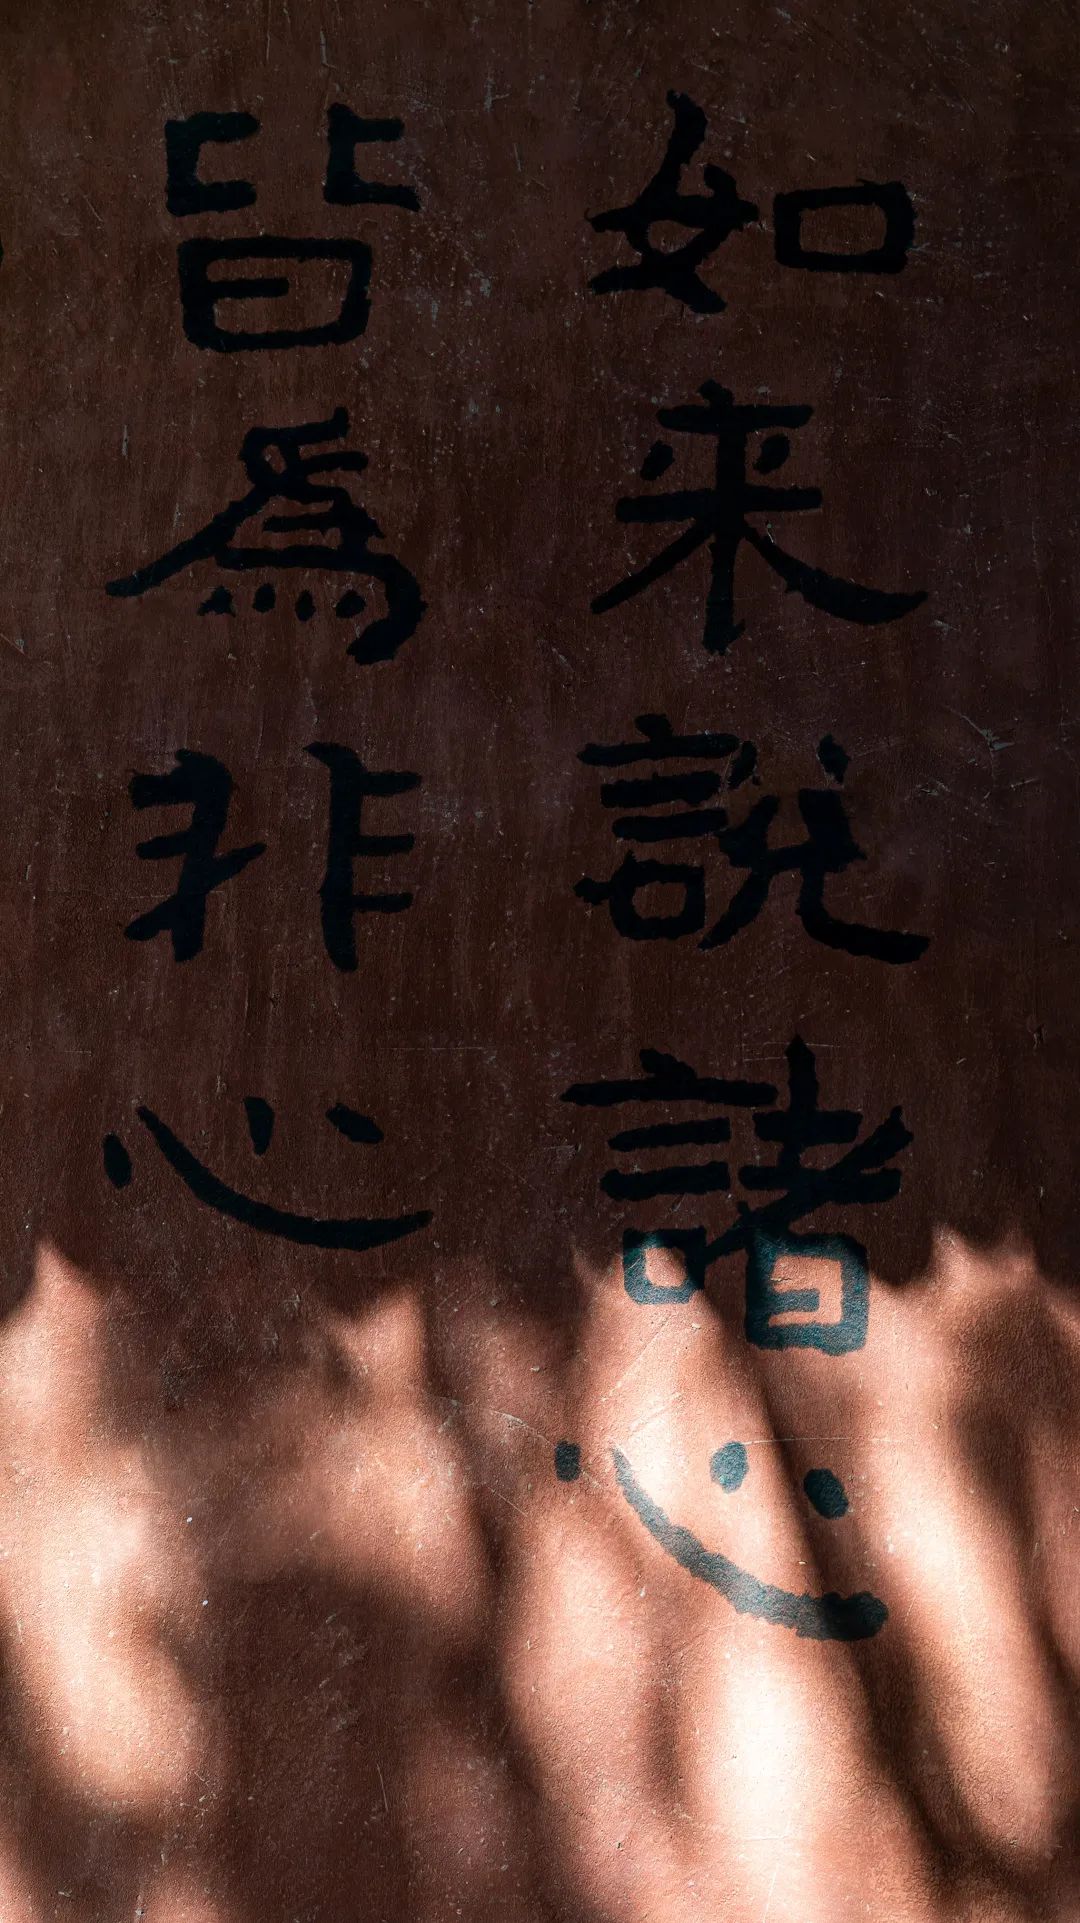 如来說諸心
皆為非心